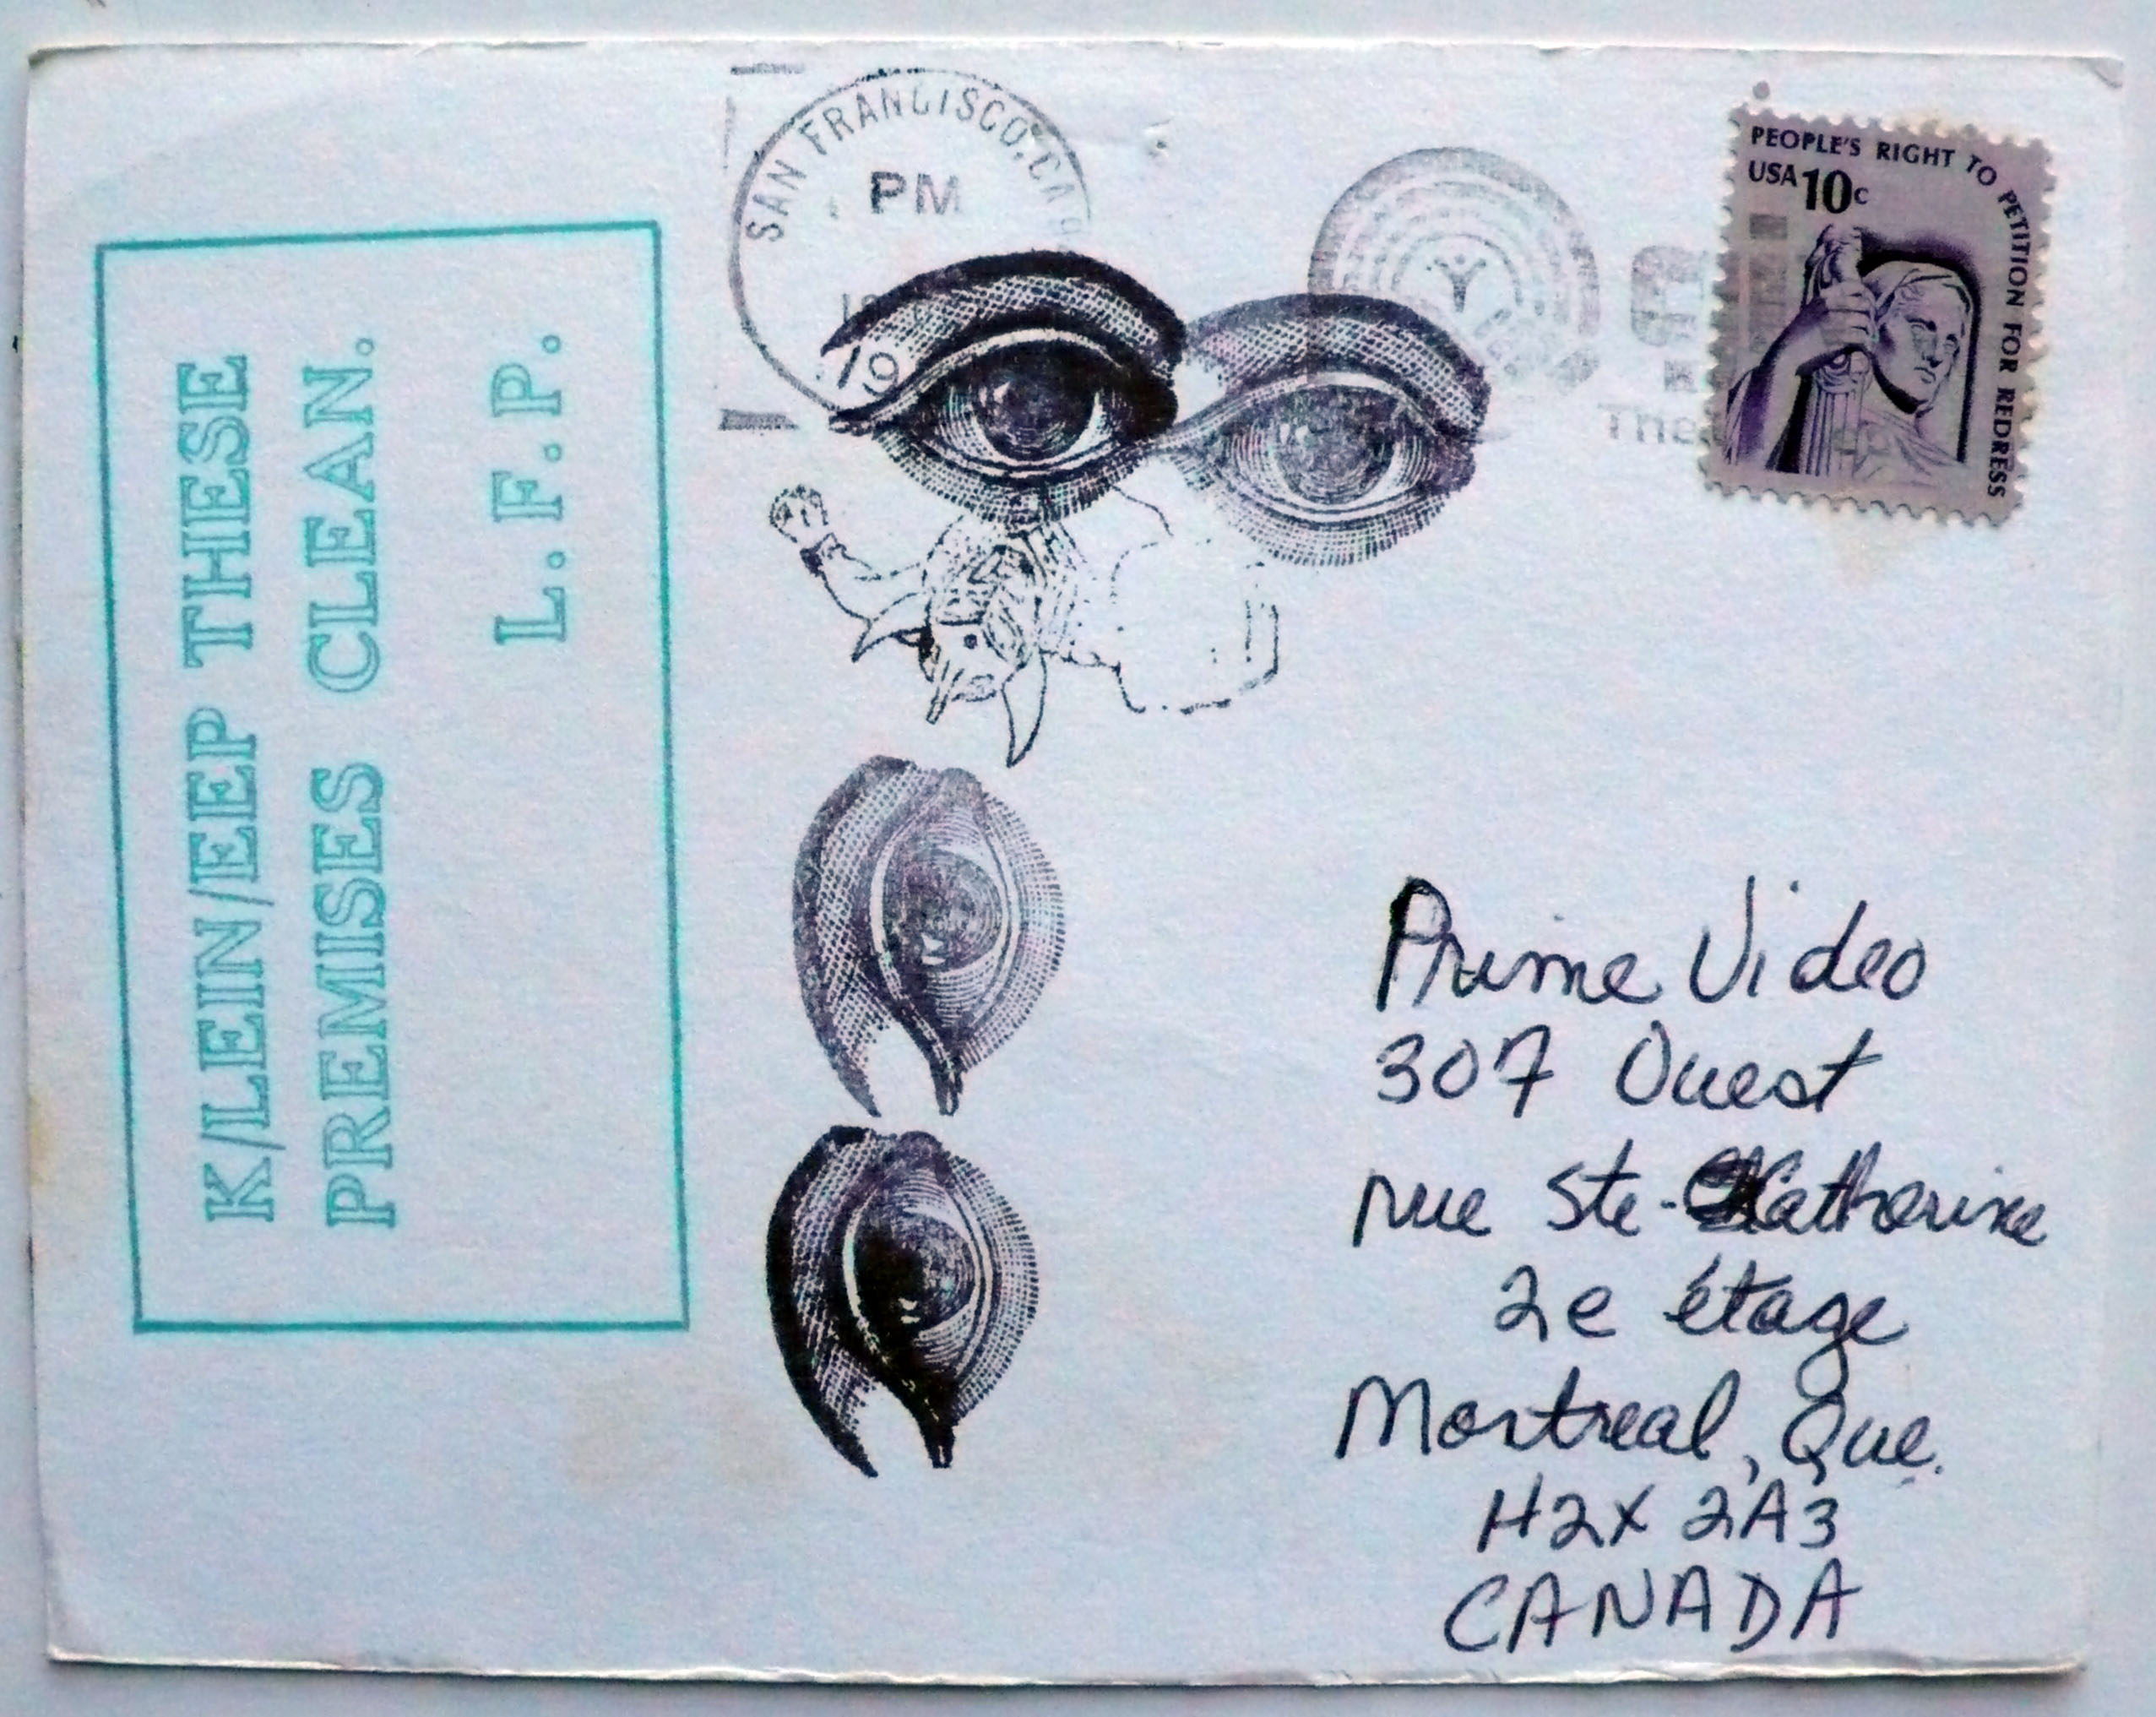 K/LEIN/EEP THESE
PREMISES CLEAN.
L. F. P.
SAN FRANCISCO, CA
PM
19
PEOPLE'S RIGHT TO PETITION FOR REDRESS
USA 10c
The
Prime Video
307 Ouest
rue Ste-Katherine
2e étage
Montreal, Que.
H2X 2A3
CANADA